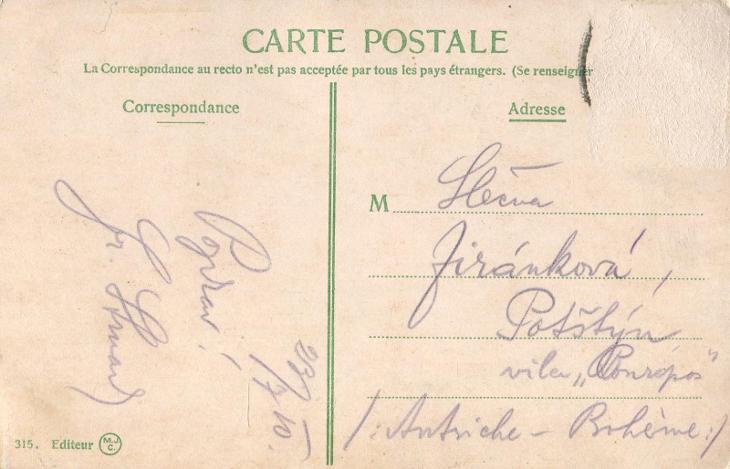 CARTE POSTALE
La Correspondance au recto n'est pas acceptée par tous les pays étrangers. (Se renseigner
Correspondance
Adresse
Pozdrav!
Fr.
M Slečna
Jiránková,
Potštýn
vila „
/: Autriche - Bohême :/
315. Editeur M.J C.